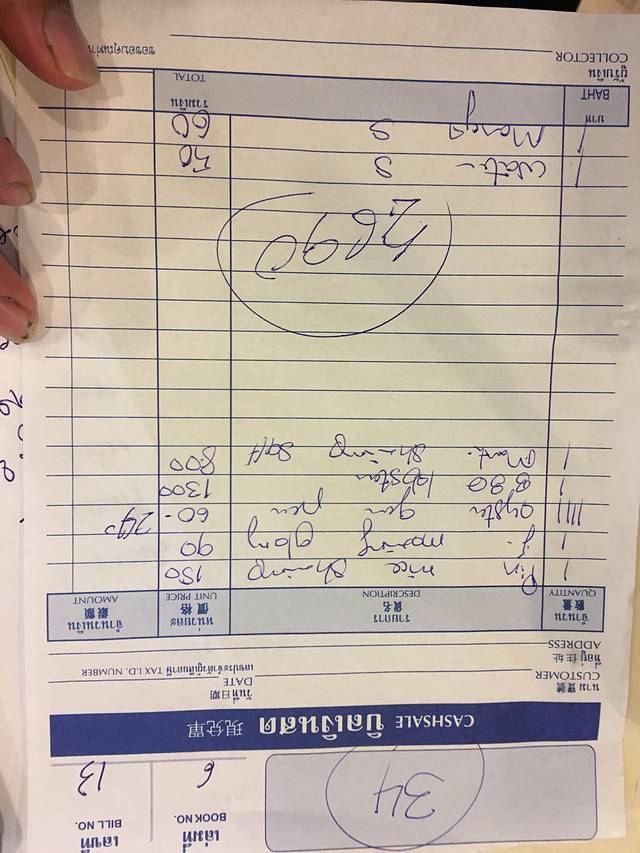 34
เล่มที่ BOOK NO. 6
เลขที่ BILL NO. 13
CASHSALE บิลเงินสด 現兌單
นาม 寶號 CUSTOMER
วันที่ 日期 DATE
ที่อยู่ 住址 ADDRESS
เลขประจำตัวผู้เสียภาษี TAX I.D. NUMBER
จำนวน 數量 QUANTITY
รายการ 貨名 DESCRIPTION
หน่วยละ 價格 UNIT PRICE
จำนวนเงิน 銀額 AMOUNT
1 Pin rice Shrimp 150
1 f. morning glory 90
1111 oyster 60- 240
1 BBQ lobster 1300
1 Shrimp Salt 800
2690
1 Water S 50
1 Mango S 60
บาท BAHT
รวมเงิน TOTAL
ผู้รับเงิน COLLECTOR
ขอขอบคุณ